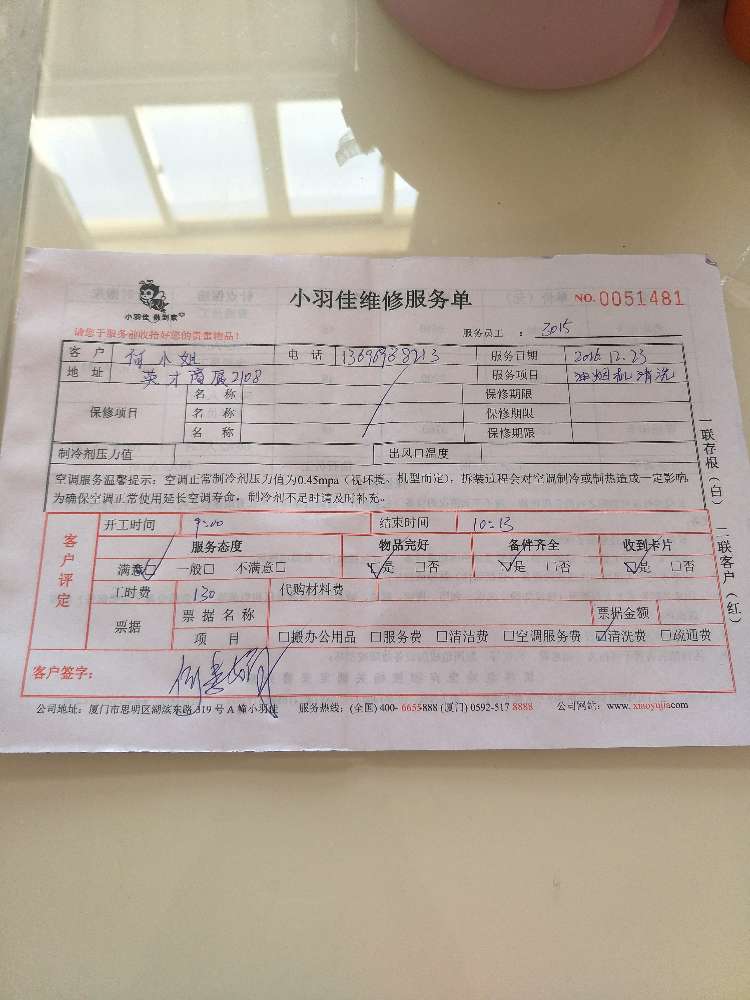 小羽佳 做到家
小羽佳维修服务单
NO. 0051481
请您于服务前收拾好您的贵重物品！
服务员工： 3015
客户 何小姐 电话 服务日期 2016.12.23
地址 服务项目 油烟机清洗
保修项目
名称 保修期限
名称 保修期限
名称 保修期限
制冷剂压力值 出风口温度
空调服务温馨提示：空调正常制冷剂压力值为0.45mpa（视环境、机型而定），拆装过程会对空调制冷或制热造成一定影响，
为确保空调正常使用延长空调寿命，制冷剂不足时请及时补充。
一联存根（白） 二联客户（红）
客户评定
开工时间 9:00 结束时间 10:13
服务态度 物品完好 备件齐全 收到卡片
满意☑ 一般□ 不满意□ ☑是 □否 ☑是 □否 ☑是 □否
工时费 130 代购材料费
票据
票据名称 票据金额
项目 □搬办公用品 □服务费 □清洁费 □空调服务费 ☑清洗费 □疏通费
客户签字：
公司地址：厦门市思明区湖滨东路319号A幢小羽佳 服务热线：(全国) 400-6655888 (厦门) 0592-517 8888 公司网站：www.xiaoyujia.com